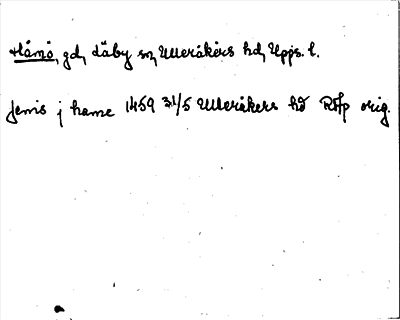 Håmö, gd, Läby sn, Ulleråkers hd, Upps. l.
Jenis j hame 1459 31/5 Ulleråkers hd RAp orig.